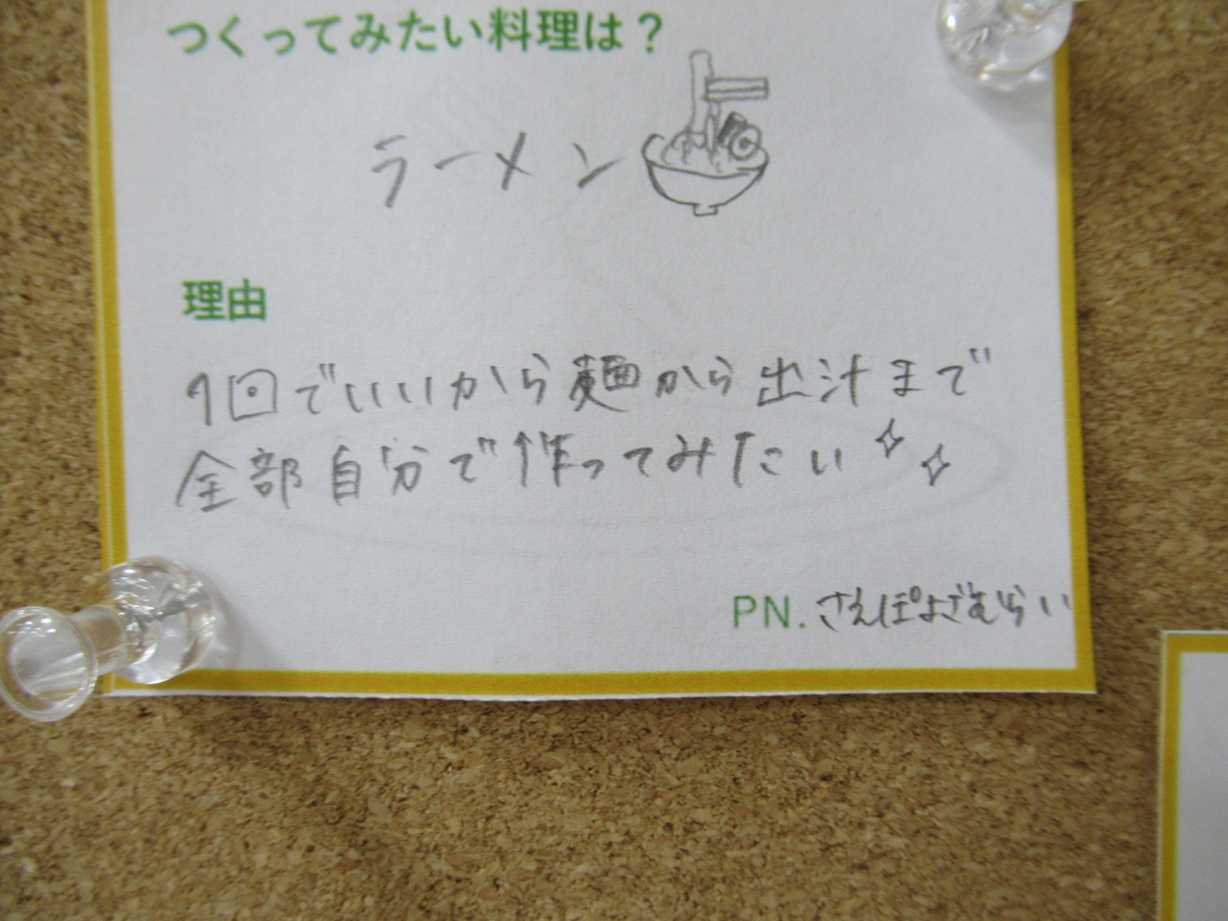 つくってみたい料理は？
ラーメン
理由
1回でいいから麺から出汁まで
全部自分で作ってみたい
PN. さえぽよざむらい